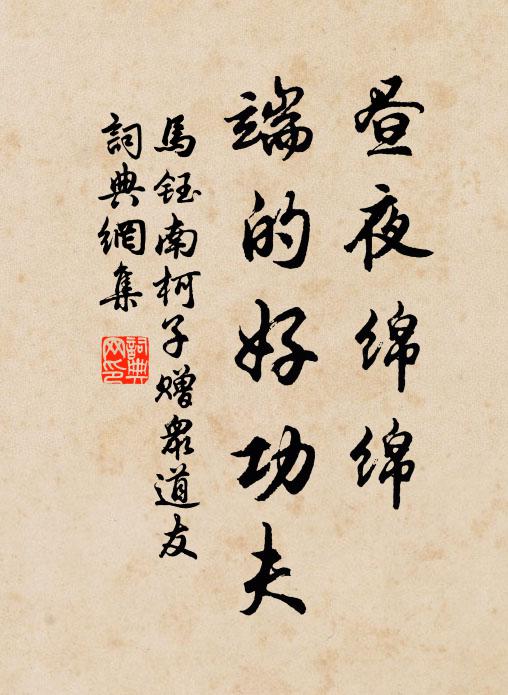 昼夜绵绵
端的好功夫
馬鈺南柯子贈衆道友
詞典網集
詞典网印